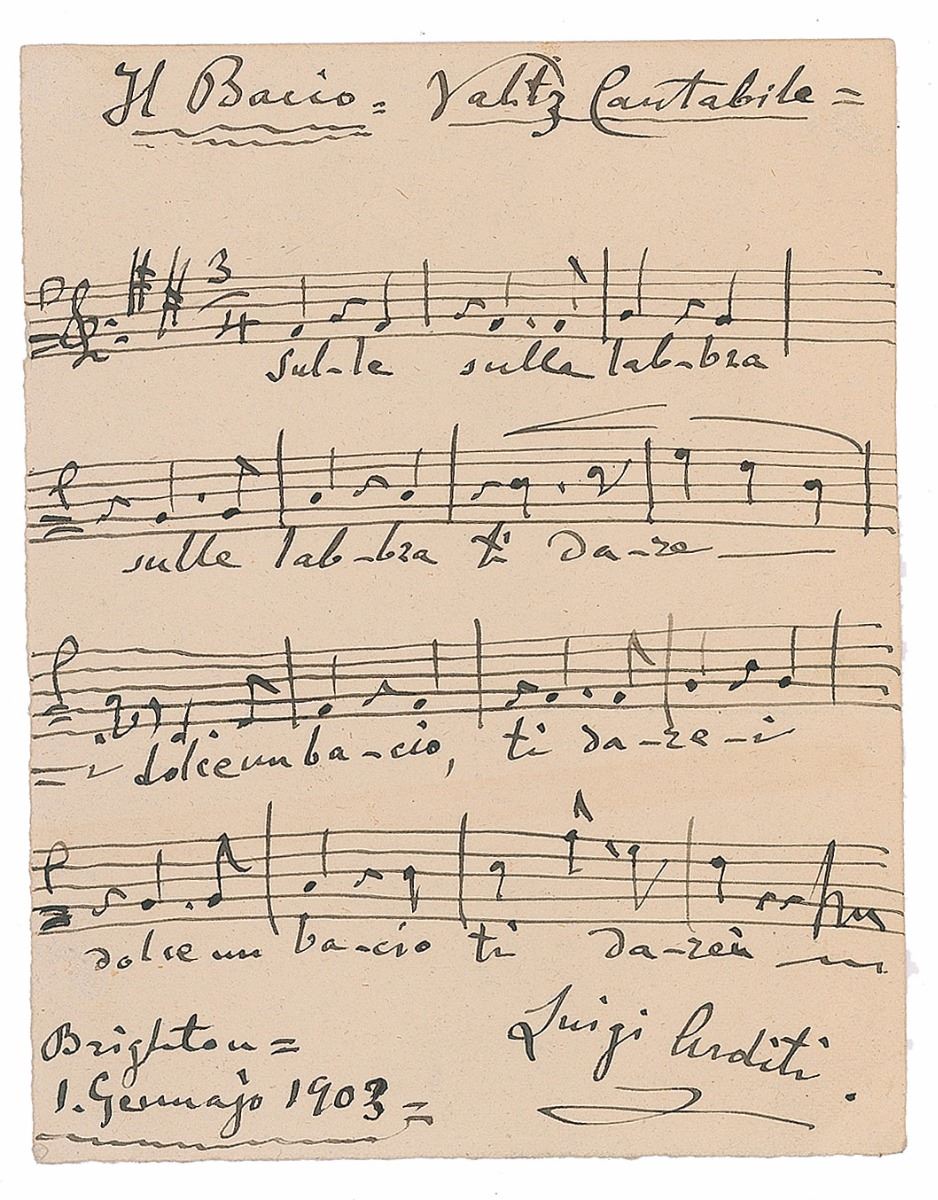 Il Bacio = Valtz Cantabile =
3
4
Sul-le sulle lab-bra
sulle lab-bra ti da-re
i dolce un ba-cio, ti da-re-i
dolce un ba-cio ti da-rei
Brighton =
1. Gennajo 1903 =
Luigi Arditi.